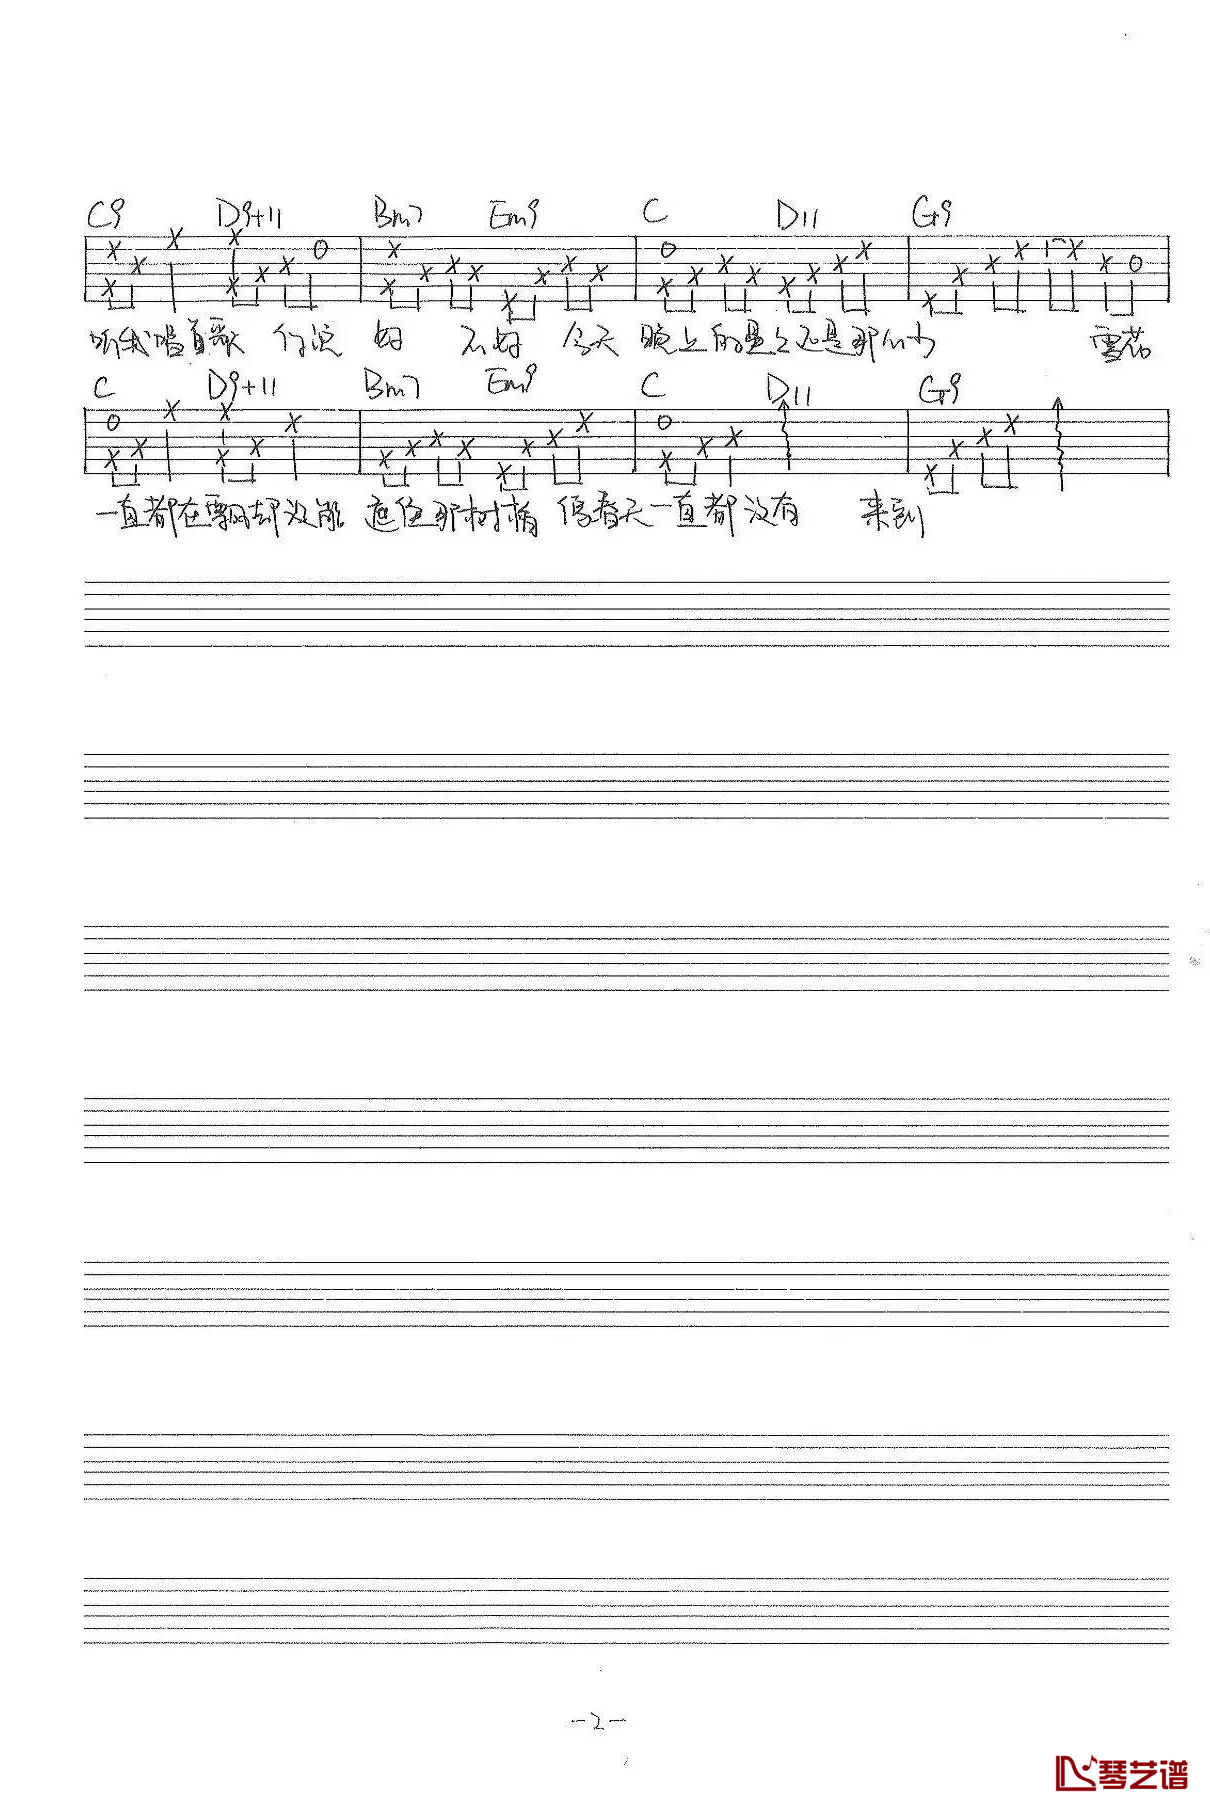 C9 D9+11 Bm7 Em9 C D11 G9
听我唱首歌 你说 好 不好 今天 晚上的星星还是那么少 雪花
C D9+11 Bm7 Em9 C D11 G9
一直都在飘却没能 遮住那树梢 像春天一直都没有 来到
-2-
琴艺谱